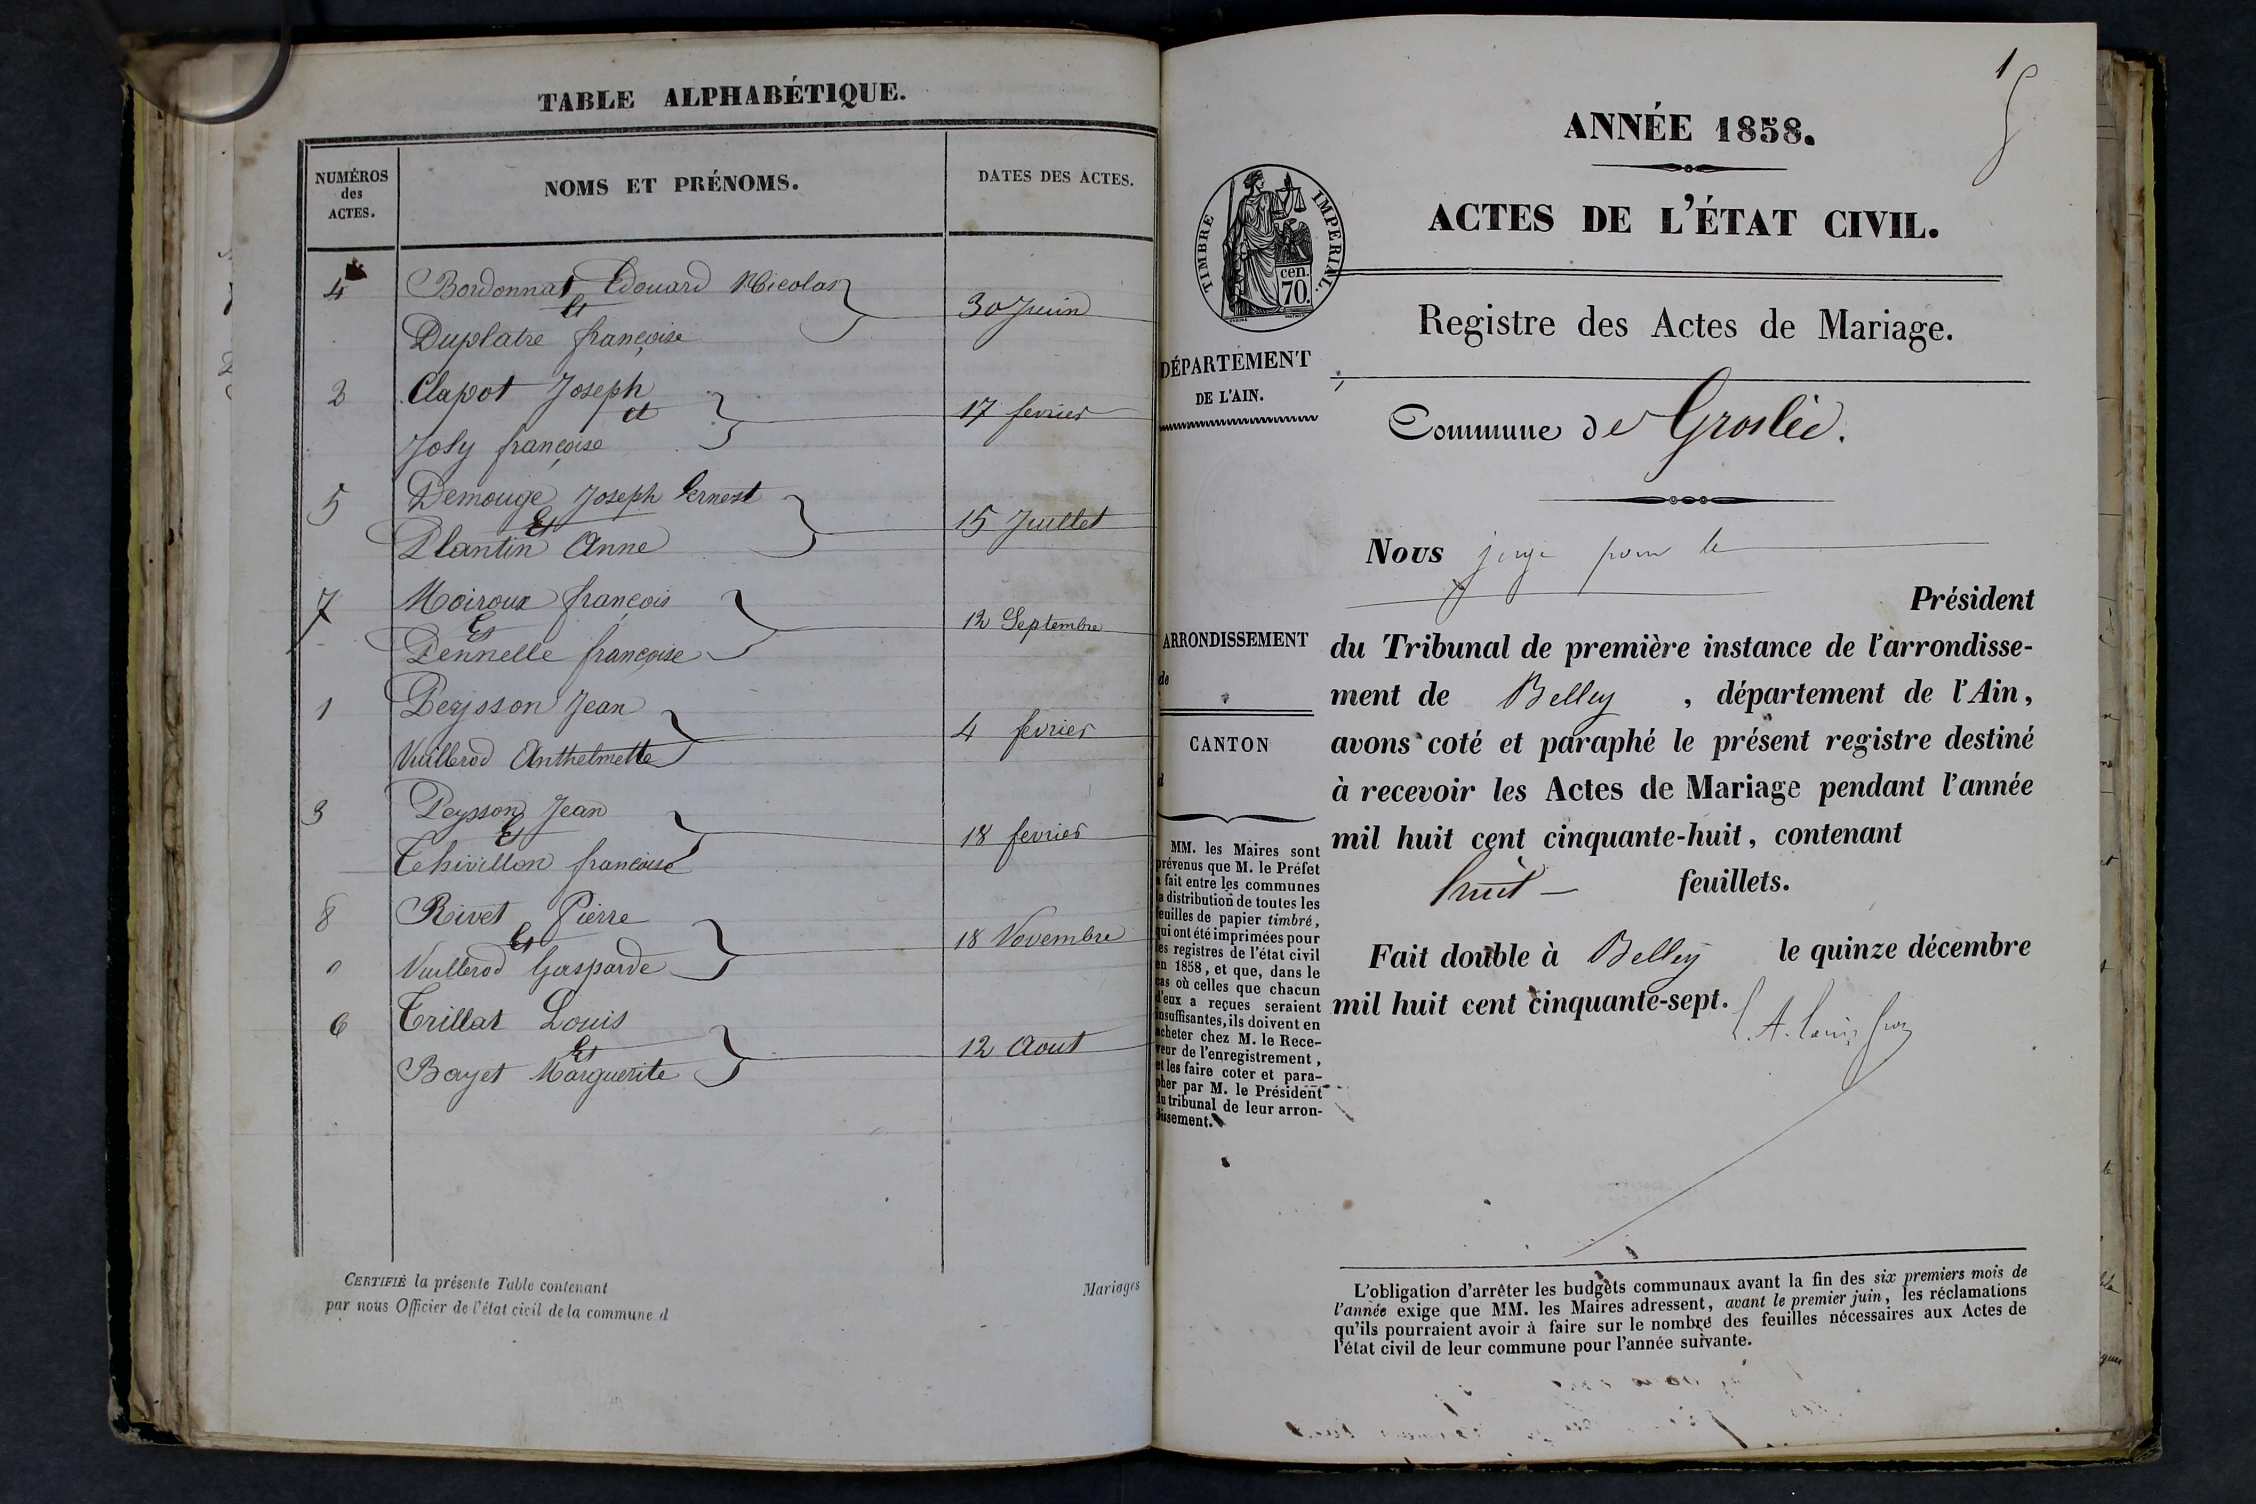 TABLE ALPHABÉTIQUE.
NUMÉROS
des
ACTES.
NOMS ET PRÉNOMS.
DATES DES ACTES.
4
Bordonnat Edouard Nicolas
Et
30 Juin
Duplatre françoise
2
Clapot Joseph
et
17 fevrier
Joly françoise
5
Demouge Joseph Ernest
Et
15 Juillet
Plantin Anne
7
Moiroux françois
Et
12 Septembre
Pennelle françoise
1
Peysson Jean
4 fevrier
Vuillerod Anthelmette
3
Peysson Jean
Et
18 fevrier
Thivillon françoise
8
Rivet Pierre
Et
18 Novembre
Vuillerod Gasparde
6
Trillat Louis
Et
12 Aout
Bayet Marguerite
CERTIFIÉ la présente Table contenant
Mariages
par nous Officier de l'état civil de la commune d
1
ANNÉE 1858.
TIMBRE IMPERIAL.
cen.
70.
ACTES DE L'ÉTAT CIVIL.
Registre des Actes de Mariage.
DÉPARTEMENT
DE L'AIN.
Commune de Groslée.
Nous juge pour le
Président
ARRONDISSEMENT
de
du Tribunal de première instance de l'arrondisse-
ment de Belley , département de l'Ain,
CANTON
d
avons coté et paraphé le présent registre destiné
à recevoir les Actes de Mariage pendant l'année
mil huit cent cinquante-huit, contenant
huit feuillets.
Fait double à Belley le quinze décembre
mil huit cent cinquante-sept.
MM. les Maires sont
prévenus que M. le Préfet
a fait entre les communes
la distribution de toutes les
feuilles de papier timbré,
qui ont été imprimées pour
les registres de l'état civil
en 1858, et que, dans le
cas où celles que chacun
d'eux a reçues seraient
insuffisantes, ils doivent en
acheter chez M. le Rece-
veur de l'enregistrement,
et les faire coter et para-
pher par M. le Président
du tribunal de leur arron-
dissement.
L'obligation d'arrêter les budgets communaux avant la fin des six premiers mois de
l'année exige que MM. les Maires adressent, avant le premier juin, les réclamations
qu'ils pourraient avoir à faire sur le nombre des feuilles nécessaires aux Actes de
l'état civil de leur commune pour l'année suivante.